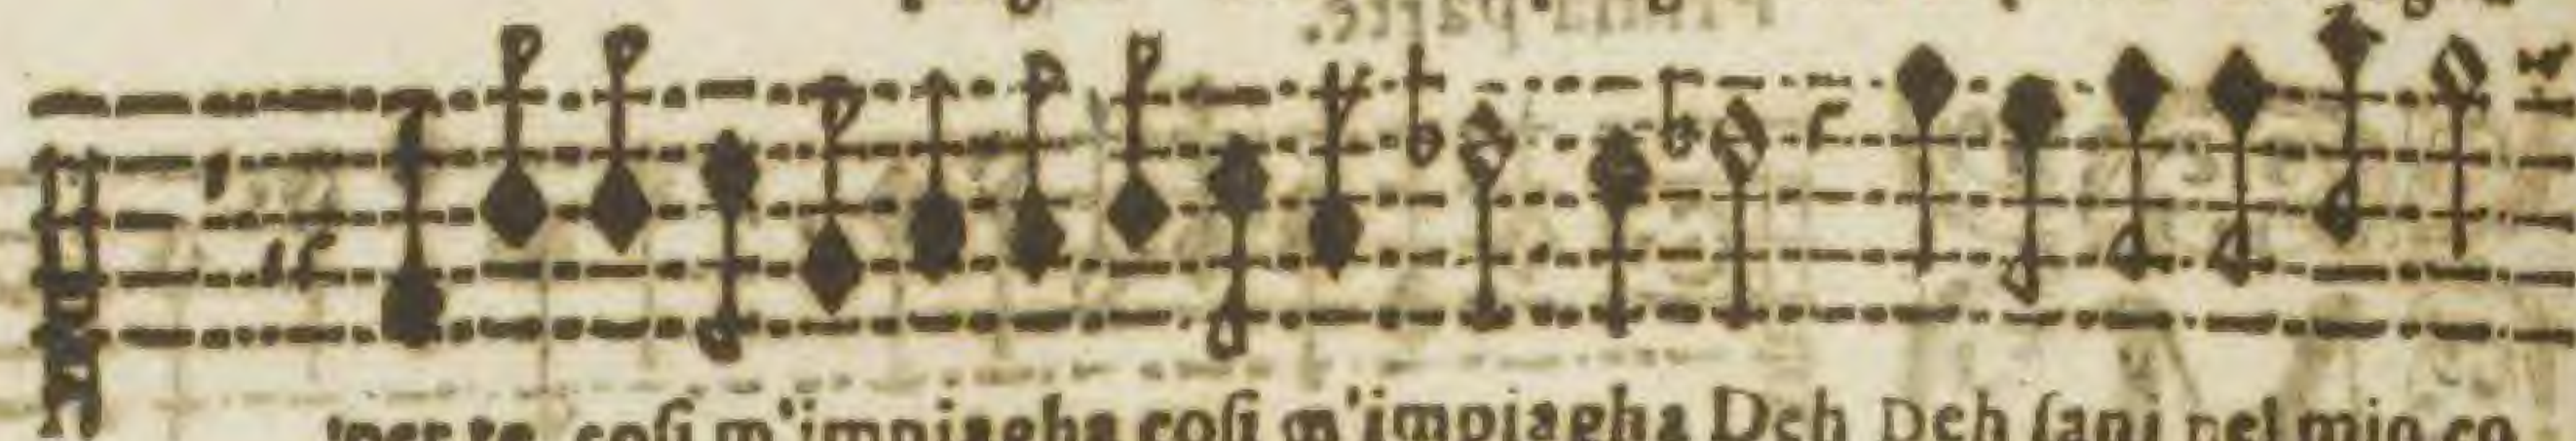 per te cosi m'impiagha cosi m'impiagha Deh Deh sani nel mio co